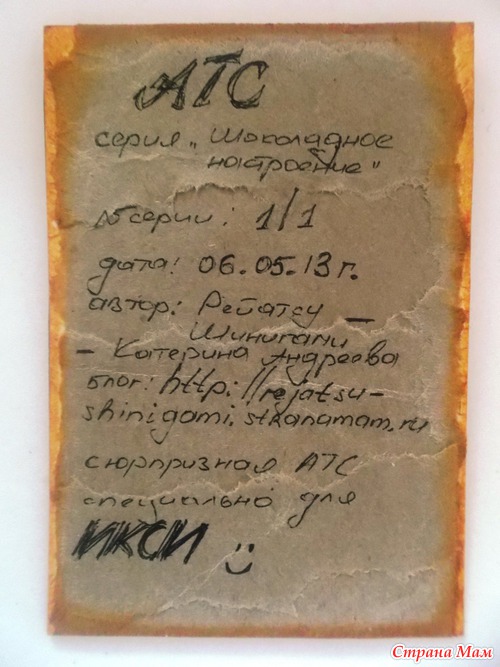 АТС
серия „Шоколадное
настроение"
№ серии: 1/1
дата: 06.05.13 г.
автор: Рейатсу —
Шинигами
– Катерина Андреева
блог: http://rejatsu-
shinigami.stranamam.ru
сюрпризная АТС
специально для
ИКСИ
Страна Мам